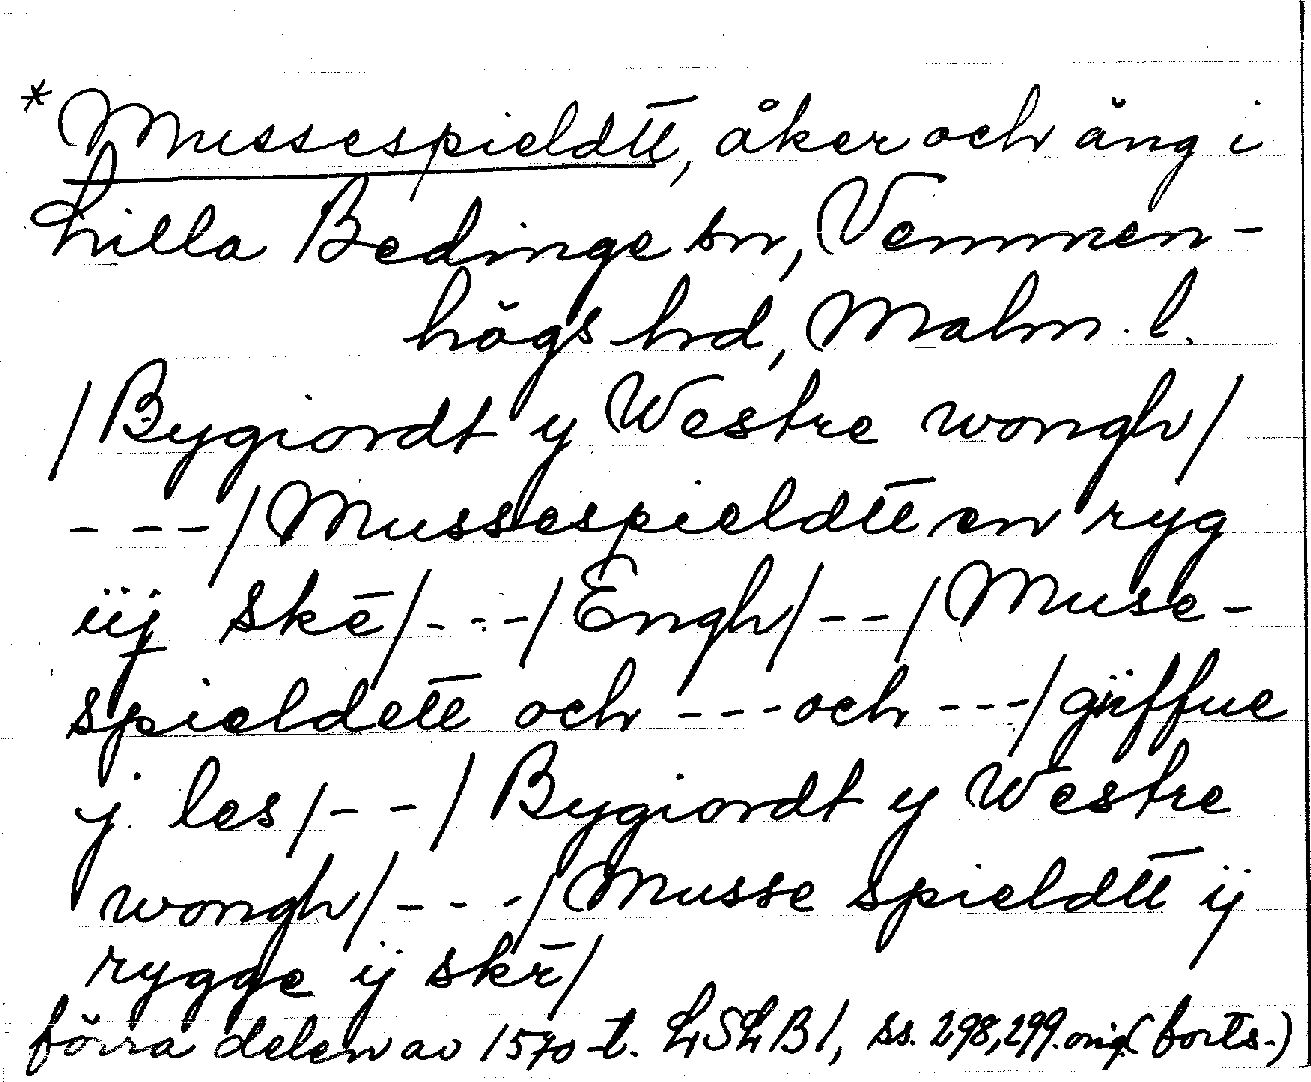 *Mussespieldtt, åker och äng i
Lilla Bedinge sn, Vemmen-
högs hd, Malm. l.
/Bygiordt y Westre wongh/
- - -/Mussespieldtt en ryg
iij skē/- - -/Engh/- -/Muse-
spieldett och - - - och - - -/giiffue
j les/- -/Bygiordt y Westre
wongh/- - -/Musse spieldtt ij
rygge ij skē/
förra delen av 1570-t. LSLB1, ss. 298, 299. orig. (forts.)